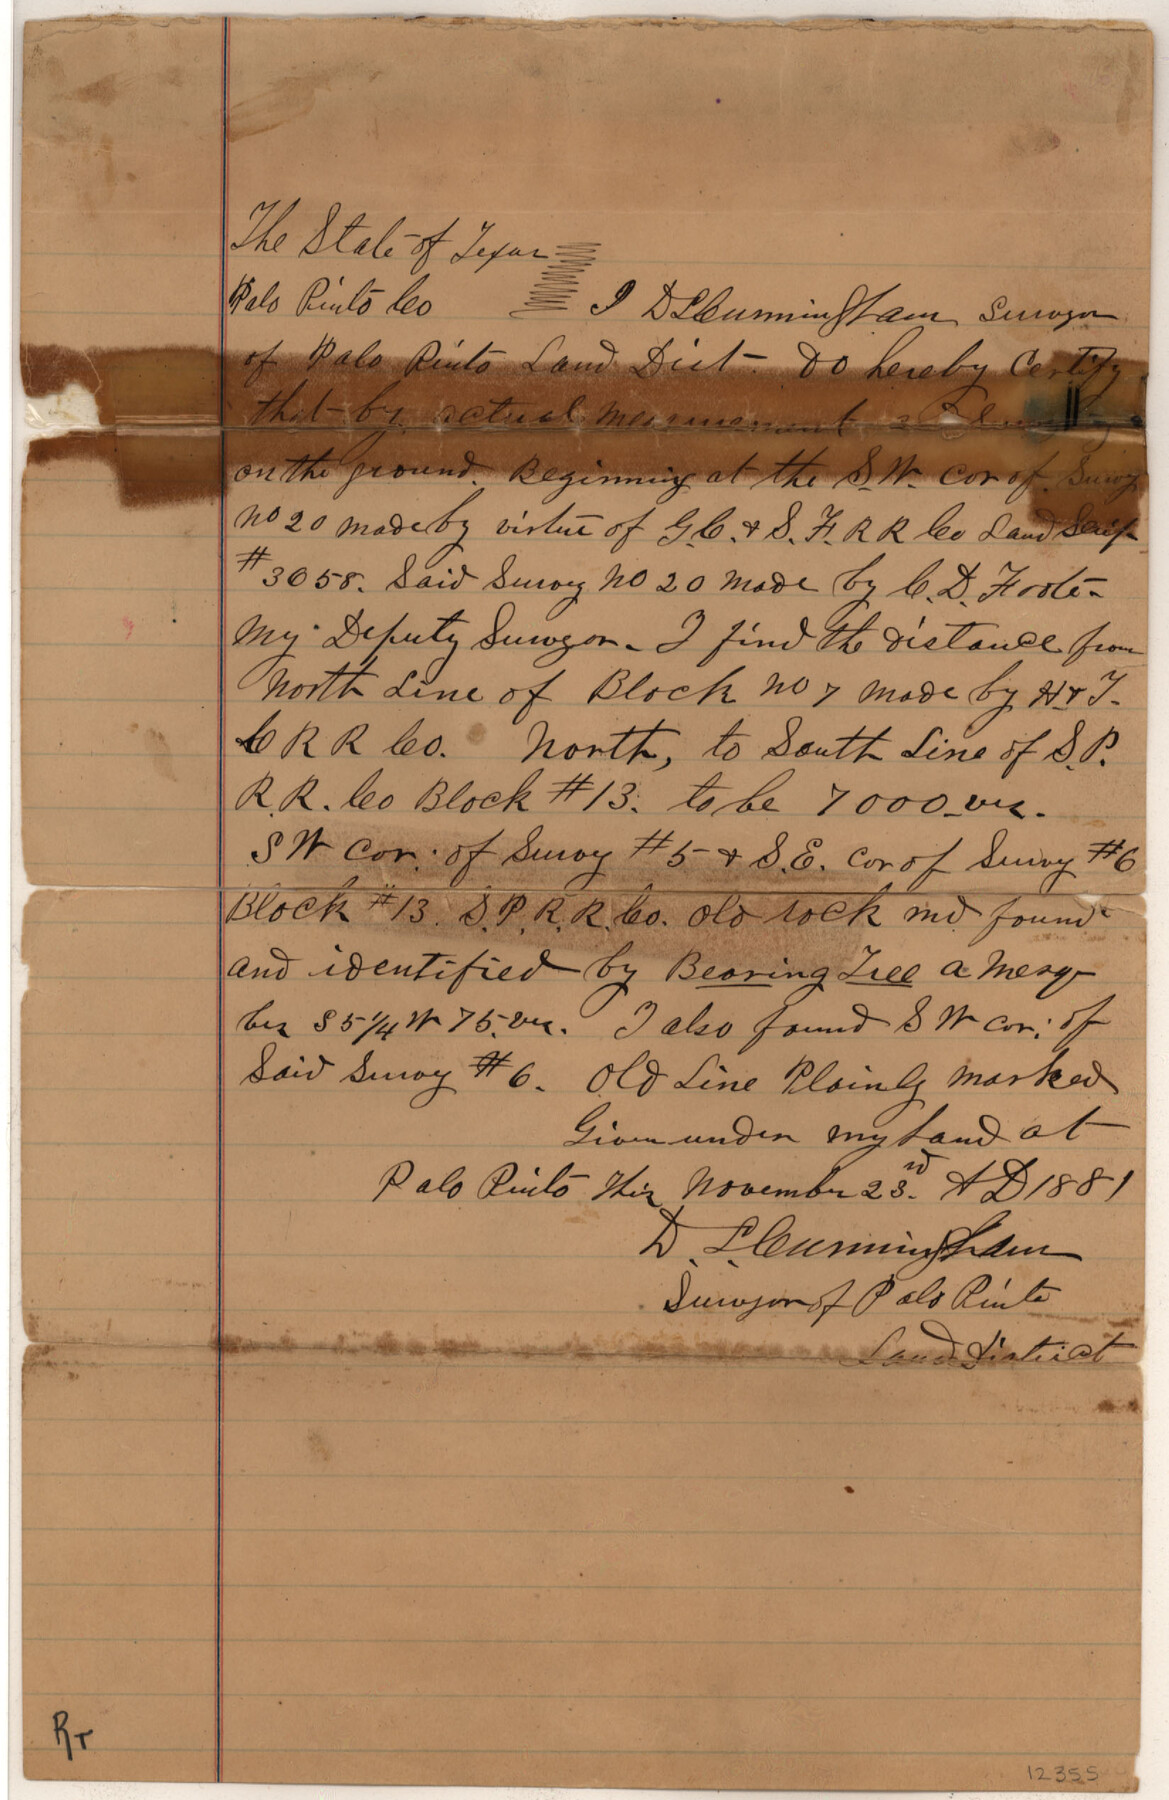 The State of Texas
Palo Pinto Co I D L Cunningham Surveyor
of Palo Pinto Land Dist - Do hereby Certify
that by actual measurement
on the ground. Beginning at the S.W. cor of Survey
No 20 made by virtue of G.C. & S.F. R R Co Land Scrip
#3058. Said Survey No 20 made by C.D. Foote -
My Deputy Surveyor - I find the distance from
North Line of Block No 7 made by H & T.
C R R Co. North, to South Line of S.P.
R.R. Co Block #13. to be 7000 vrs.
SW cor. of Survey #5 & S.E. cor of Survey #6
Block #13. S.P.R.R.Co. Old rock md found
and identified by Bearing Tree a Mesq-
brs S 5 1/4 W 75 vrs. I also found SW cor. of
Said Survey #6. Old Line Plainly marked
Given under my hand at
Palo Pinto this November 23rd A D 1881
D. L. Cunningham
Surveyor of Palo Pinto
Land District
RT
12355